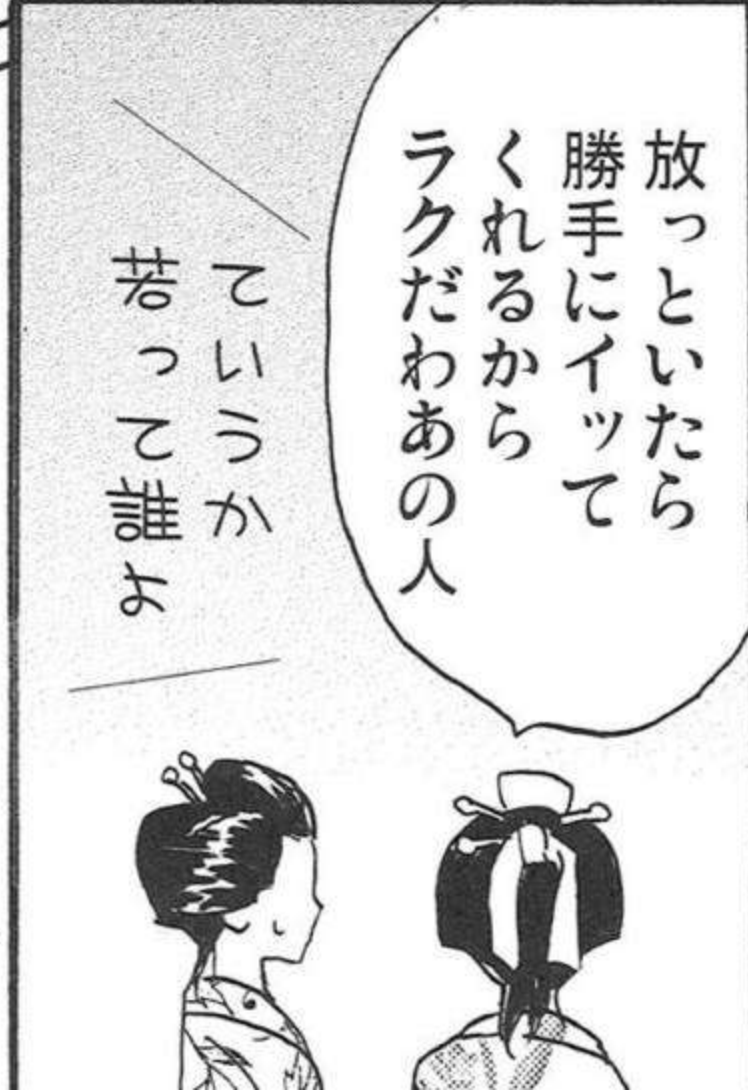 放っといたら
勝手にイッて
くれるから
ラクだわあの人
ていうか
若って誰よ